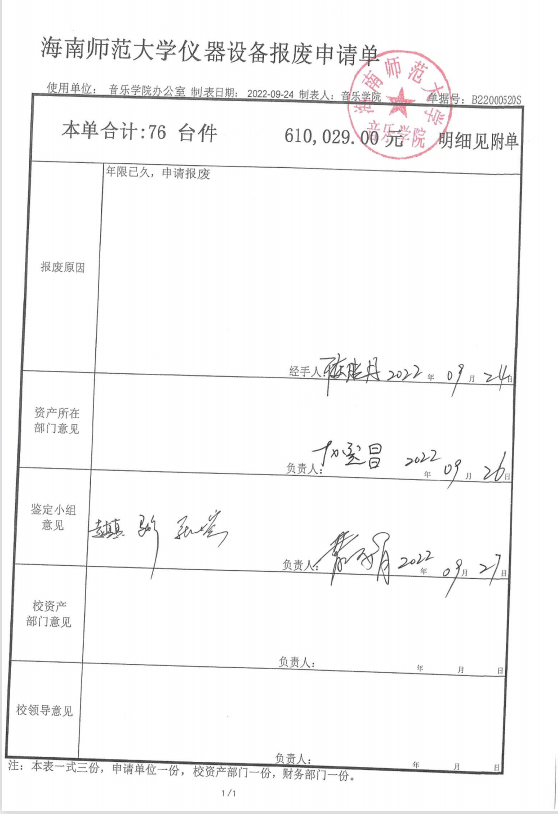 海南师范大学仪器设备报废申请单
使用单位: 音乐学院办公室 制表日期: 2022-09-24 制表人: 音乐学院 单据号: B22000520S
海南师范大学
音乐学院
本单合计:76 台件 610,029.00 元 明细见附单
报废原因
年限已久，申请报废
经手人 2022 年 09 月 24 日
资产所在
部门意见
负责人: 2022 年 09 月 26 日
鉴定小组
意见
负责人: 2022 年 09 月 27 日
校资产
部门意见
负责人: 年 月 日
校领导意见
负责人: 年 月 日
注: 本表一式三份，申请单位一份，校资产部门一份，财务部门一份。
1/1